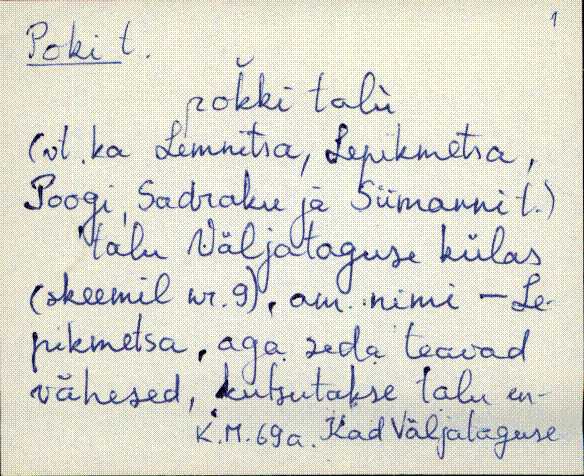 1
Poki t.
pok̆ki talù
(vt. ka Lemnitsa, Lepikmetsa,
Poogi, Sadraku ja Siimanni t.)
talu Väljataguse külas
(skeemil nr. 9), am. nimi – Le-
pikmetsa, aga seda teavad
vähesed, kutsutakse talu en-
K.M. 69 a. Kad Väljataguse